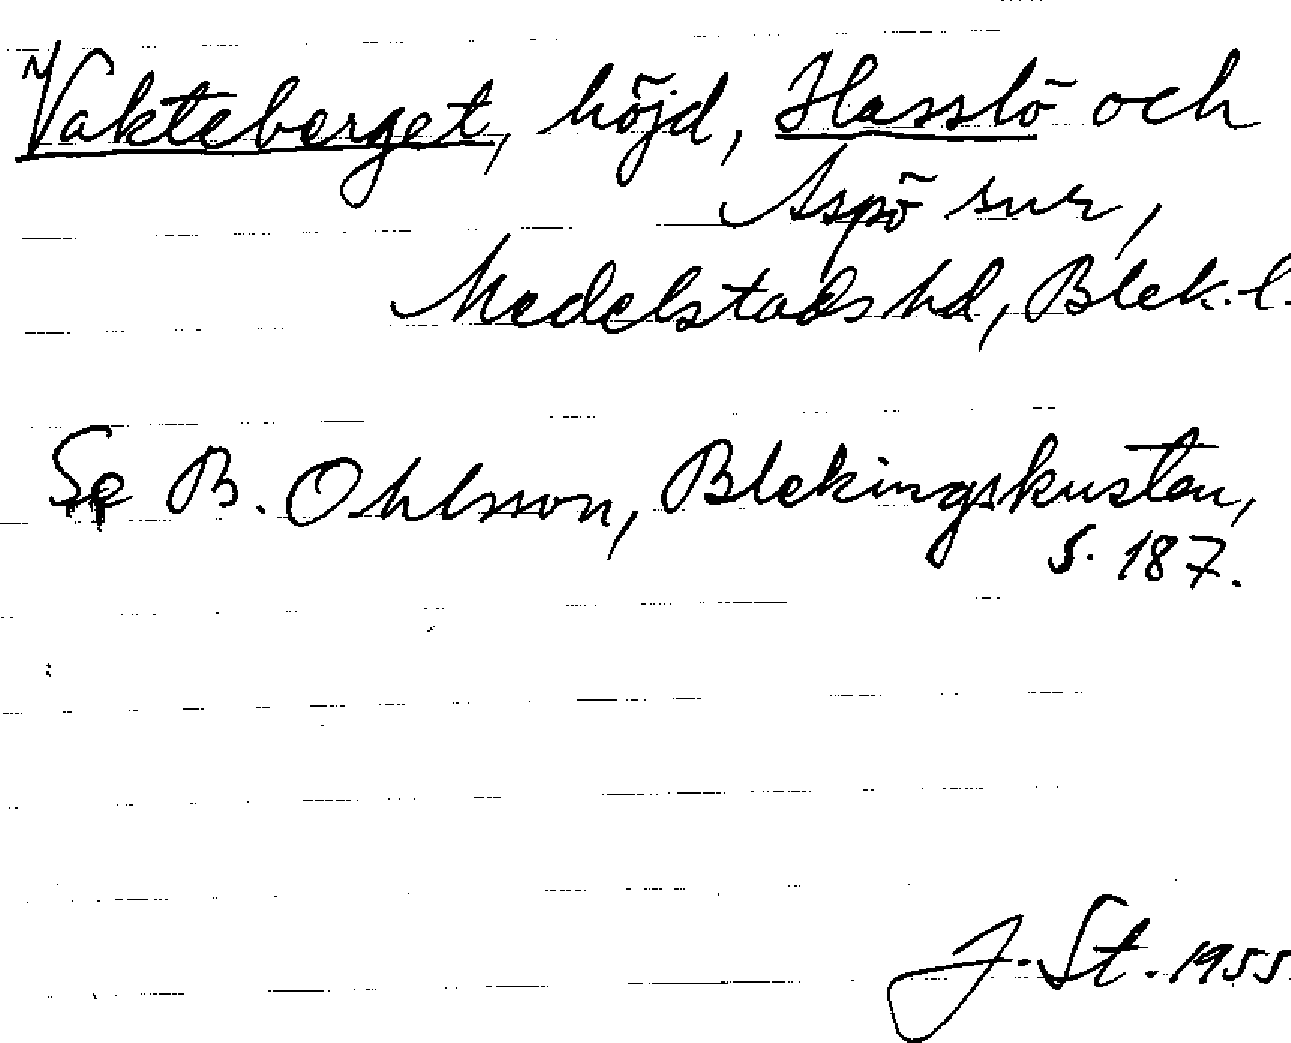 Vakteberget, höjd, Hasslö och
Aspö snr,
Medelstads hd, Blek. l.
Se B. Ohlsson, Blekingskusten,
s. 187.
J. St. 1955